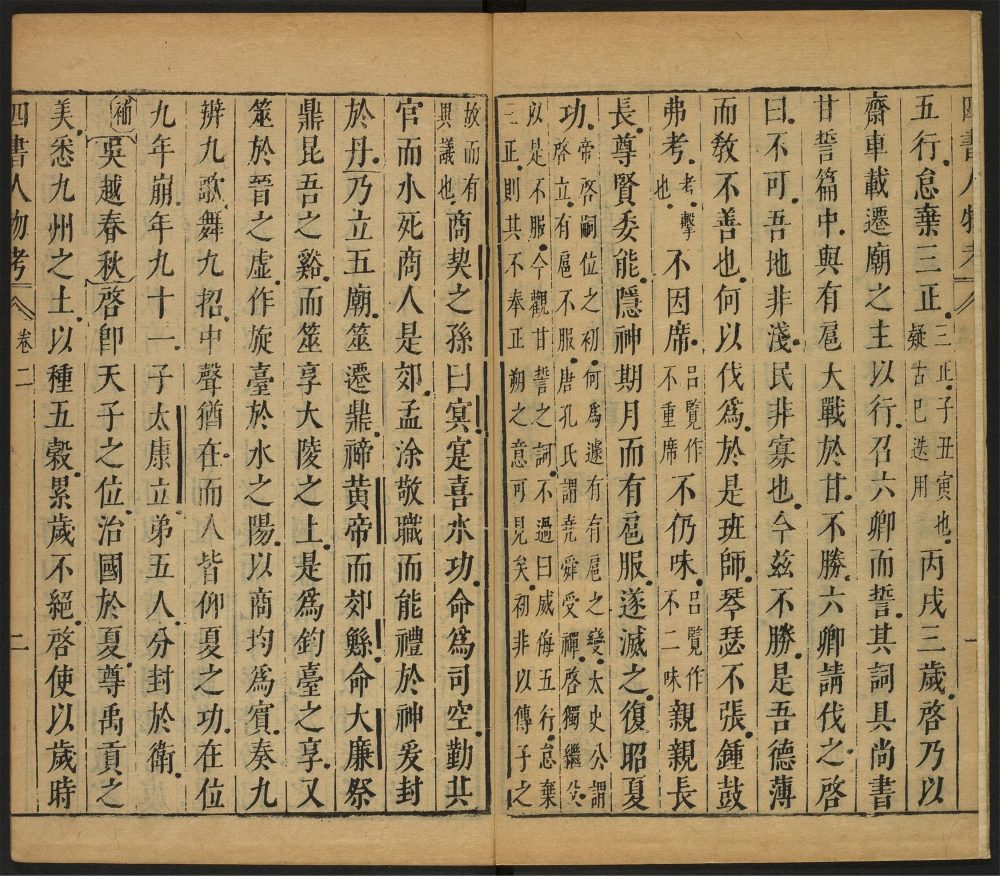 四書人物考
五行怠棄三正三正子丑寅也疑古已迭用丙戌三歲啓乃以
齋車載遷廟之主以行召六卿而誓其詞具尚書
甘誓篇中與有扈大戰於甘不勝六卿請伐之啓
曰不可吾地非淺民非寡也今茲不勝是吾德薄
而教不善也何以伐爲於是班師琴瑟不張鍾鼓
弗考考擊也不因席呂覽作不重席不仍味呂覽作不二味親親長
長尊賢委能隱神期月而有扈服遂滅之復昭夏
功帝啓嗣位之初何爲遽有有扈之變太史公謂啓立有扈不服唐孔氏謂堯舜受禪啓獨繼父
以是不服今觀甘誓之詞不過曰威侮五行怠棄三正則其不奉正朔之意可見矣初非以傳子之
故而有異議也商契之孫曰冥寔喜水功命爲司空勤其
官而水死商人是郊孟涂敬職而能禮於神爰封
於丹乃立五廟筮遷鼎禘黃帝而郊鯀命大廉祭
鼎昆吾之谿而筮享大陵之上是爲鈞臺之享又
筮於晉之虛作旋臺於水之陽以商均爲賓奏九
辨九歌舞九招中聲猶在而人皆仰夏之功在位
九年崩年九十一子太康立弟五人分封於衛
補吳越春秋啓卽天子之位治國於夏尊禹貢之
美悉九州之土以種五穀累歲不絕啓使以歲時
四書人物考 卷二 二